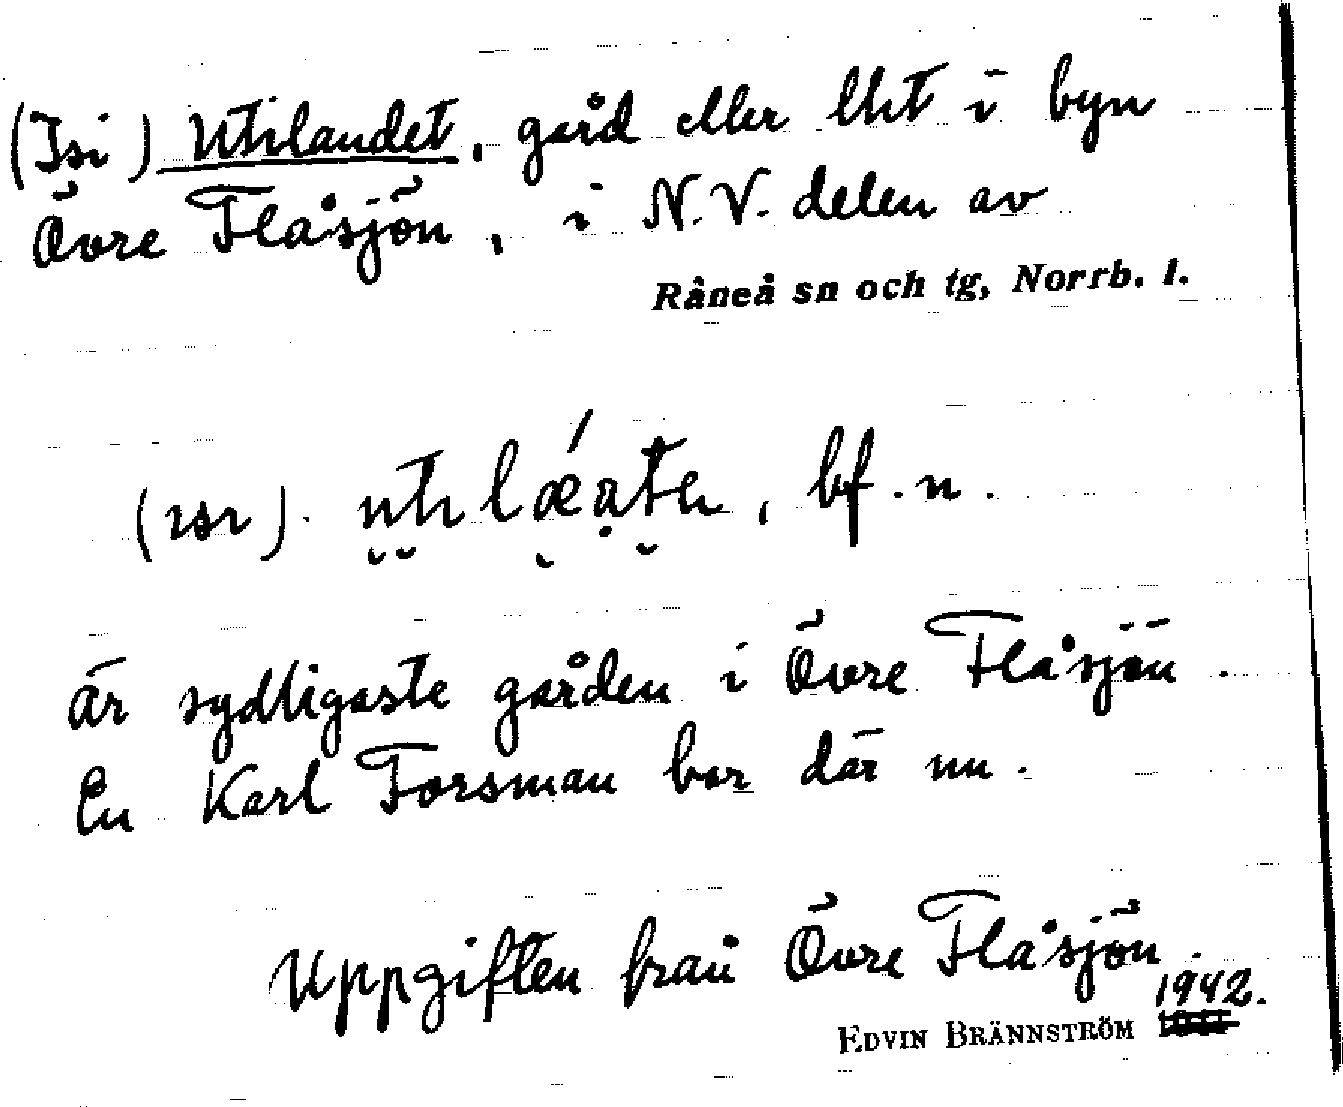 (Isi) Utilandet, gård eller lht i byn
Övre Flåsjön, i N.V. delen av
Råneå sn och tg, Norrb. l.
bf. n.
är sydligaste gården i Övre Flåsjön.
En Karl Forsman bor där nu.
Uppgiften från Övre Flåsjön.
1942.
EDVIN BRÄNNSTRÖM